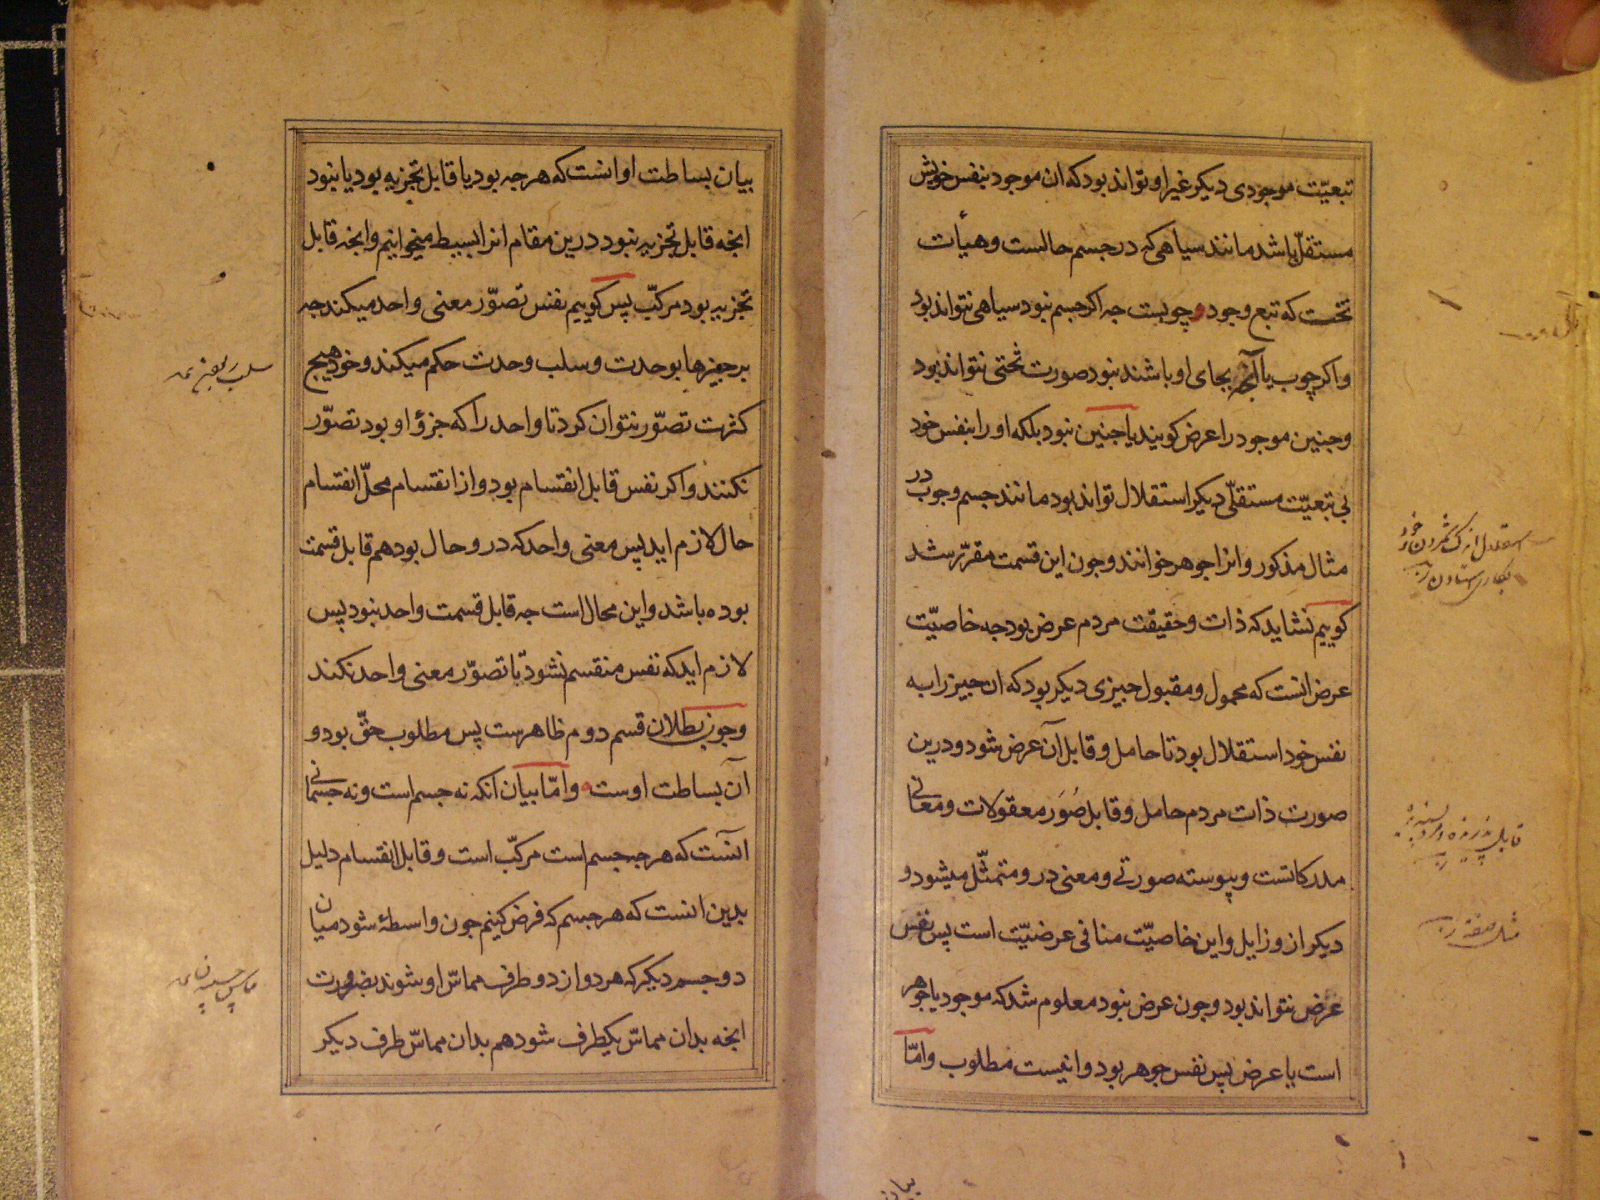 تبعیّت موجودی دیکر غیر او تواند بود که ان موجود بنفس خویش
مستقلّ باشد مانند سیاهی که در جسم حالست و هیأت
تخت که تبع وجود چوبست جه اکر جسم نبود سیاهی نتواند بود
و اکر چوب یا آنجه بجای او باشند نبود صورت تختی نتواند بود
و جنین موجود را عرض کویند یا جنین نبود بلکه او را بنفس خود
بی تبعیّت مستقلّی دیکر استقلال تواند بود مانند جسم و جوب در
مثال مذکور و انرا جوهر خوانند و جون این قسمت مقرّر شد
کوییم نشاید که ذات و حقیقت مردم عرض بود جه خاصیّت
عرض انست که محمول و مقبول جیزی دیکر بود که ان جیز را به
نفس خود استقلال بود تا حامل و قابل آن عرض شود و درین
صورت ذات مردم حامل و قابل صُوَر معقولات و معانی
مدرکاتست و پیوسته صورتی و معنی درو متمثّل میشود و
دیکر ازو زایل و این خاصیّت منافی عرضیّت است پس نفس
عرض نتواند بود و جون عرض نبود معلوم شد که موجود یا جوهر
است یا عرض پس نفس جوهر بود و انیست مطلوب و امّا
بیان
قابل پذیرنده
بیان بساطت او انست که هرجه بود یا قابل تجزیه بود یا نبود
انجه قابل تجزیه نبود درین مقام انرا بسیط میخوانیم و انجه قابل
تجزیه بود مرکّب پس کوییم نفس تصوّر معنی واحد میکند جه
بر جیزها بوحدت و سلب وحدت حکم میکند و خود هیج
کثرت تصوّر نتوان کرد تا واحد را که جزؤ او بود تصوّر
نکنند و اکر نفس قابل انقسام بود و از انقسام محلّ انقسام
حال لازم اید پس معنی واحد که درو حال بود هم قابل قسمت
بوده باشد و این محال است جه قابل قسمت واحد نبود پس
لازم اید که نفس منقسم نشود تا تصوّر معنی واحد نکند
و جون بطلان قسم دوم ظاهرست پس مطلوب حقّ بود و
آن بساطت اوست و امّا بیان انکه نه جسم است و نه جسمانی
آنست که هرجه جسم است مرکّب است و قابل انقسام دلیل
بدین انست که هر جسم که فرض کنیم جون واسطهٔ شود میان
دو جسم دیکر که هر دو از دو طرف مماسّ او شوند بضرورت
انجه بدان مماسّ یکطرف شود هم بدان مماسّ طرف دیکر